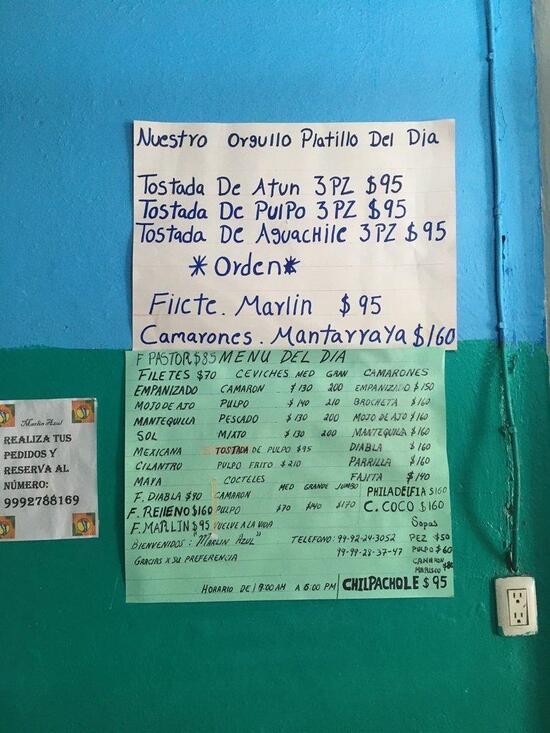 Nuestro Orgullo Platillo Del Dia
Tostada De Atun 3PZ $95
Tostada De Pulpo 3PZ $95
Tostada De Aguachile 3PZ $95
*Orden*
Filete. Marlin $95
Camarones. Mantarraya $160
F PASTOR $85 MENU DEL DIA
FILETES $70 CEVICHES MED GRAN CAMARONES
EMPANIZADO CAMARON $130 200 EMPANIZADO $150
MOJO DE AJO PULPO $140 210 BROCHETA $160
MANTEQUILLA PESCADO $130 200 MOJO DE AJO $160
SOL MIXTO $130 200 MANTEQUILLA $160
MEXICANA TOSTADA DE PULPO $95 DIABLA $160
CILANTRO PULPO FRITO $210 PARRILLA $160
MAYA COCTELES FAJITA $140
MED GRANDE JUMBO
F. DIABLA $90 CAMARON PHILADELFIA $160
F. RELLENO $160 PULPO $70 $140 $170 C. COCO $160
F. MARLIN $95 VUELVE A LA VIDA Sopas
BIENVENIDOS: "MARLIN AZUL" TELEFONO: 99-92-24-3052 PEZ $50
GRACIAS X SU PREFERENCIA 99-99-28-37-47 PULPO $60
CAMARON
MARISCO $80
HORARIO DE 9:00 AM A 6:00 PM CHILPACHOLE $95
Marlin Azul
REALIZA TUS
PEDIDOS Y
RESERVA AL
NÚMERO:
9992788169